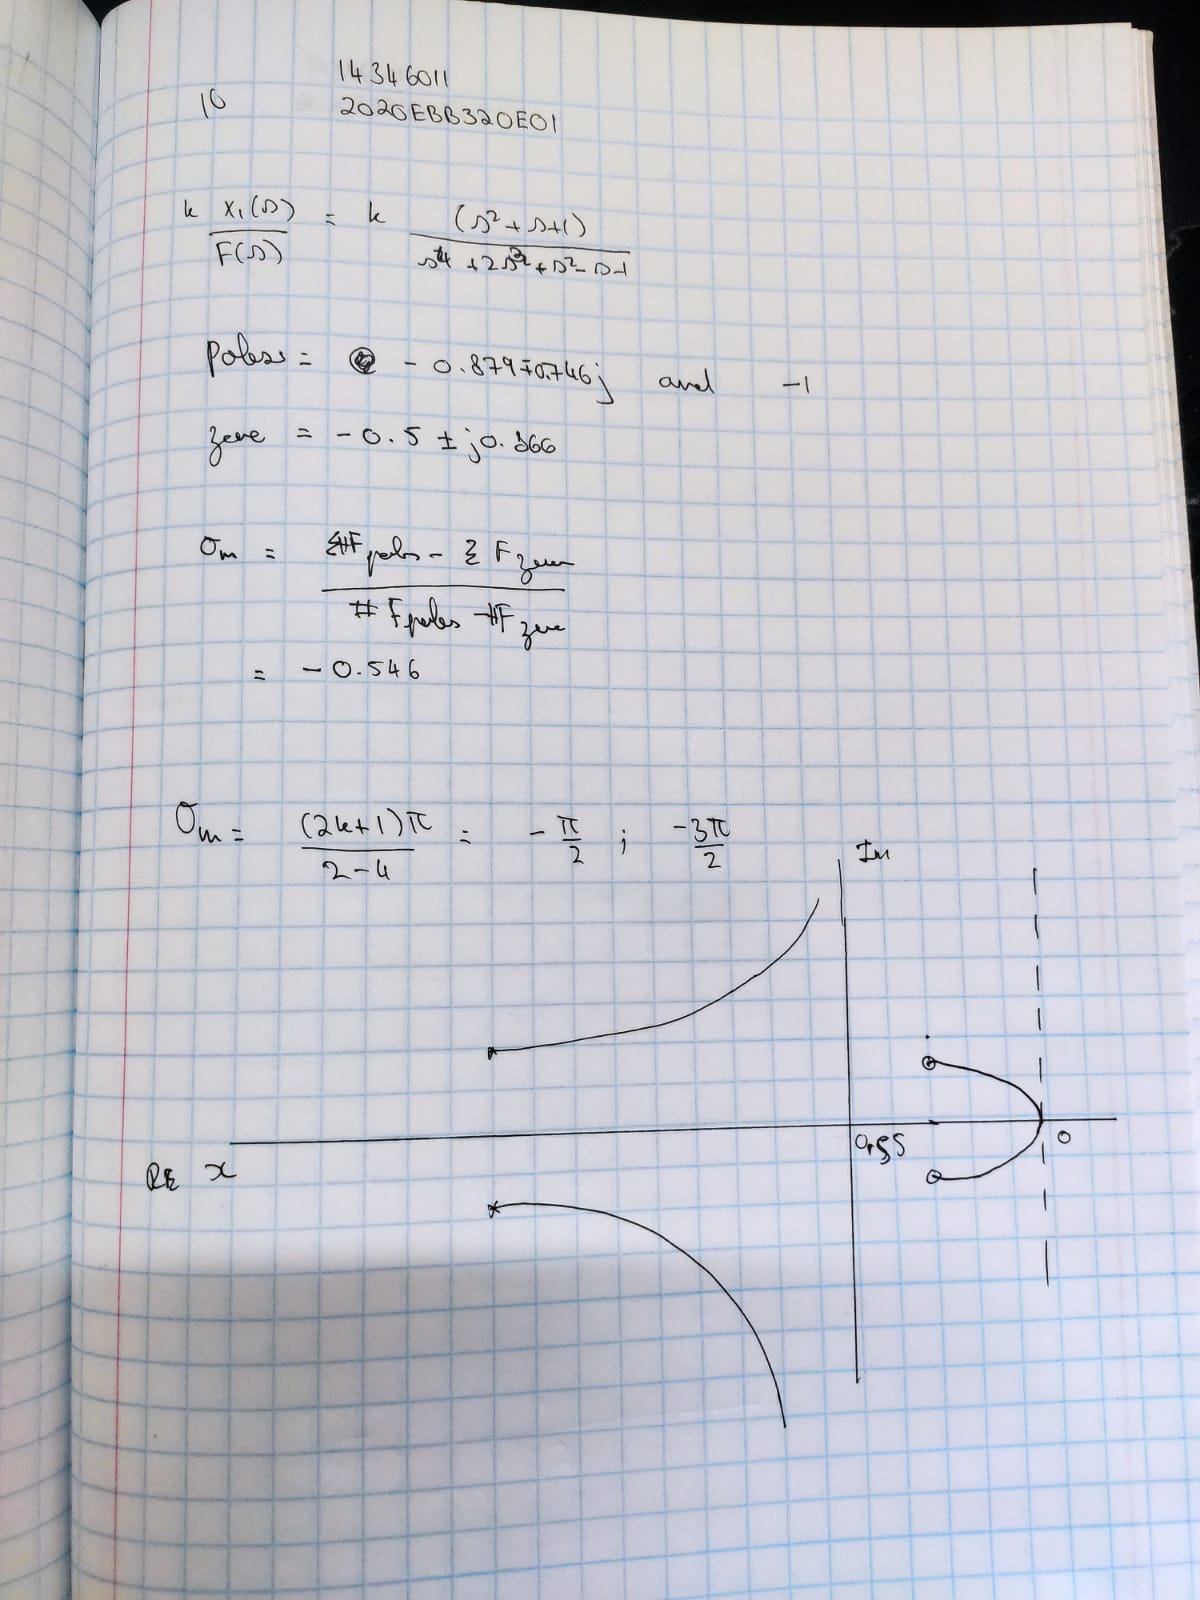 14346011
10 2020EBB320E01
k X₁(s) / F(s) = k (s² + s+1) / s⁴ + 2s³ + s² - s-1
poles = - 0.879 ∓0.746j and -1
zero = - 0.5 ± j0.866
σm = Σ F poles - Σ F zero / # F poles - #F zero
= - 0.546
σm = (2k+1)π / 2-4 = - π/2 ; -3π/2
Im
0,55 0
RE x